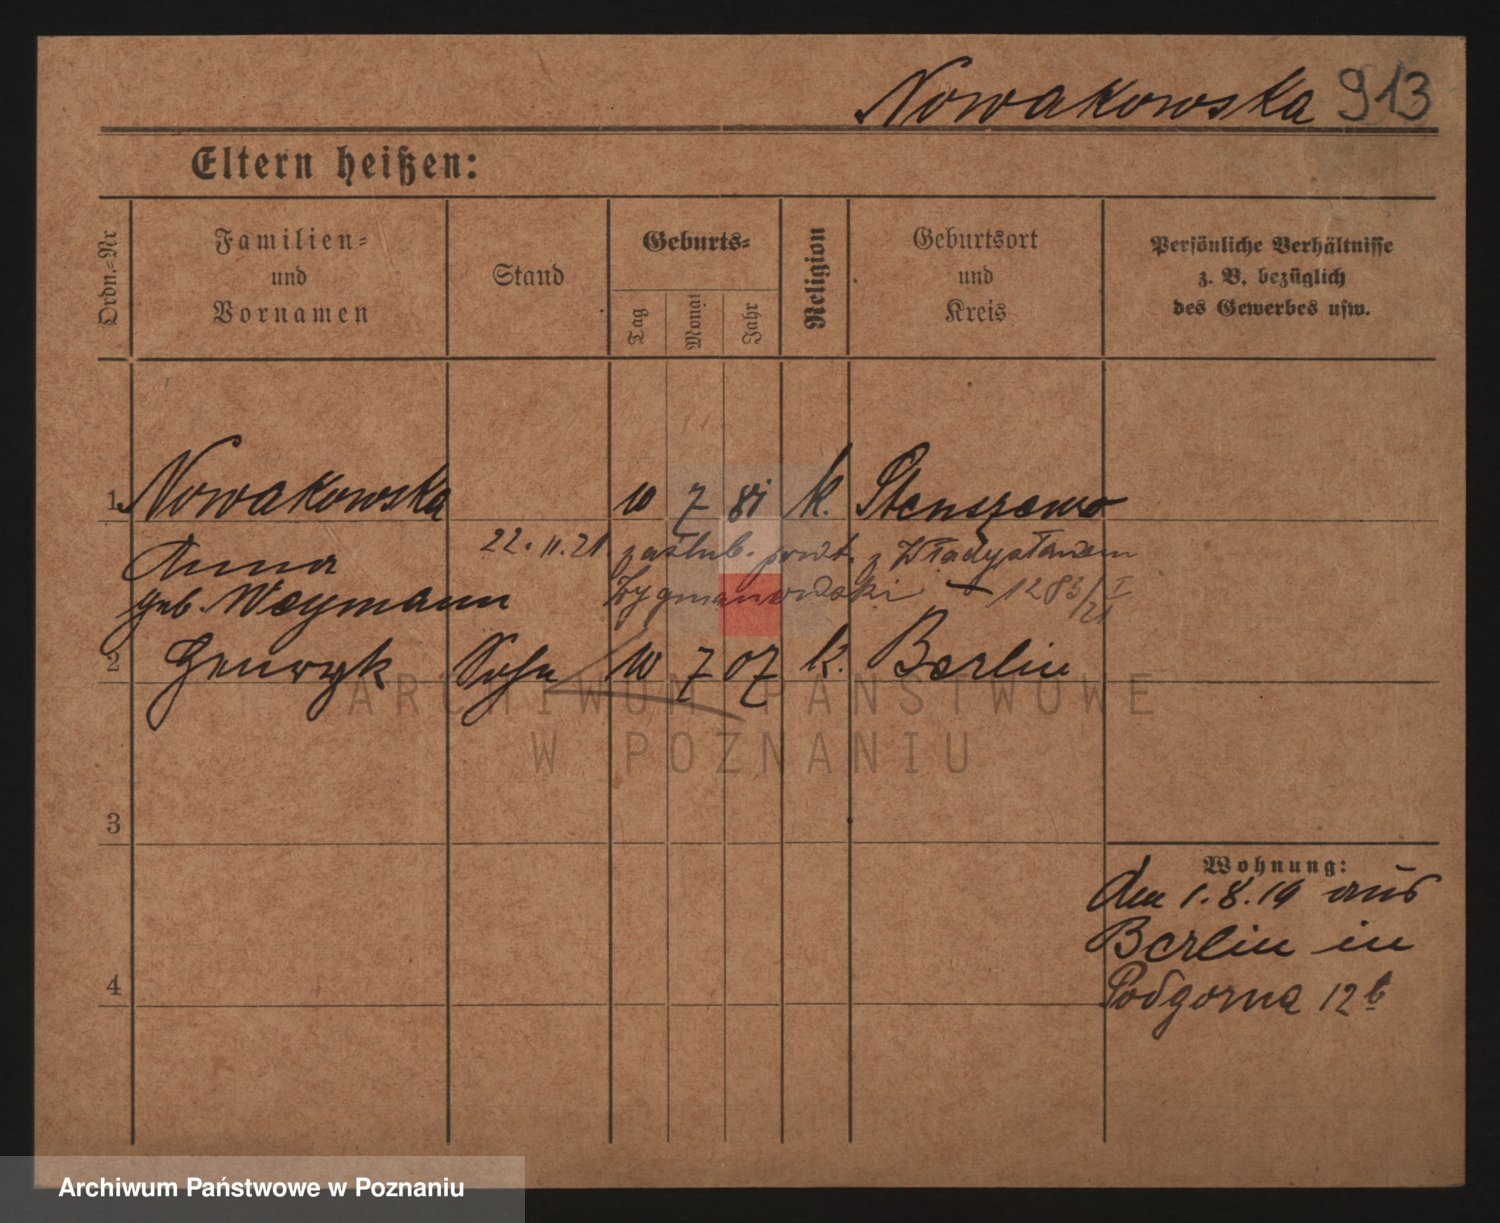 Nowakowska 913
Eltern heißen:
Ordn.-Nr
Familien-
und
Vornamen
Stand
Geburts-
Tag
Monat
Jahr
Religion
Geburtsort
und
Kreis
Persönliche Verhältnisse
z. B. bezüglich
des Gewerbes usw.
1 Nowakowska 10 7 81 k. Stenszewo
Anna
22.11.21 zaślub. powt. z Władysławem
geb. Weymann
Zygmanowski 1283/I
21
2 Henryk Sohn 10 7 07 k. Berlin
ARCHIWUM PAŃSTWOWE
W POZNANIU
3
Wohnung:
den 1.8.19 aus
Berlin in
4
Podgorna 12b
Archiwum Państwowe w Poznaniu